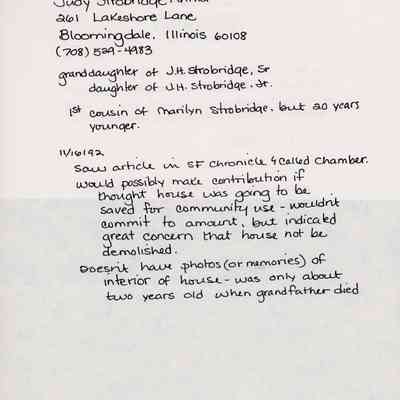 Judy Strobridge
261 Lakeshore Lane
Bloomingdale, Illinois 60108
(708) 529-4983
granddaughter of J.H. Strobridge, Sr
daughter of J.H. Strobridge, Jr.
1st cousin of Marilyn Strobridge, but 20 years
younger.
11/16/92
Saw article in SF Chronicle & called Chamber.
Would possibly make contribution if
thought house was going to be
saved for community use - wouldn't
commit to amount, but indicated
great concern that house not be
demolished.
Doesn't have photos (or memories) of
interior of house - was only about
two years old when grandfather died